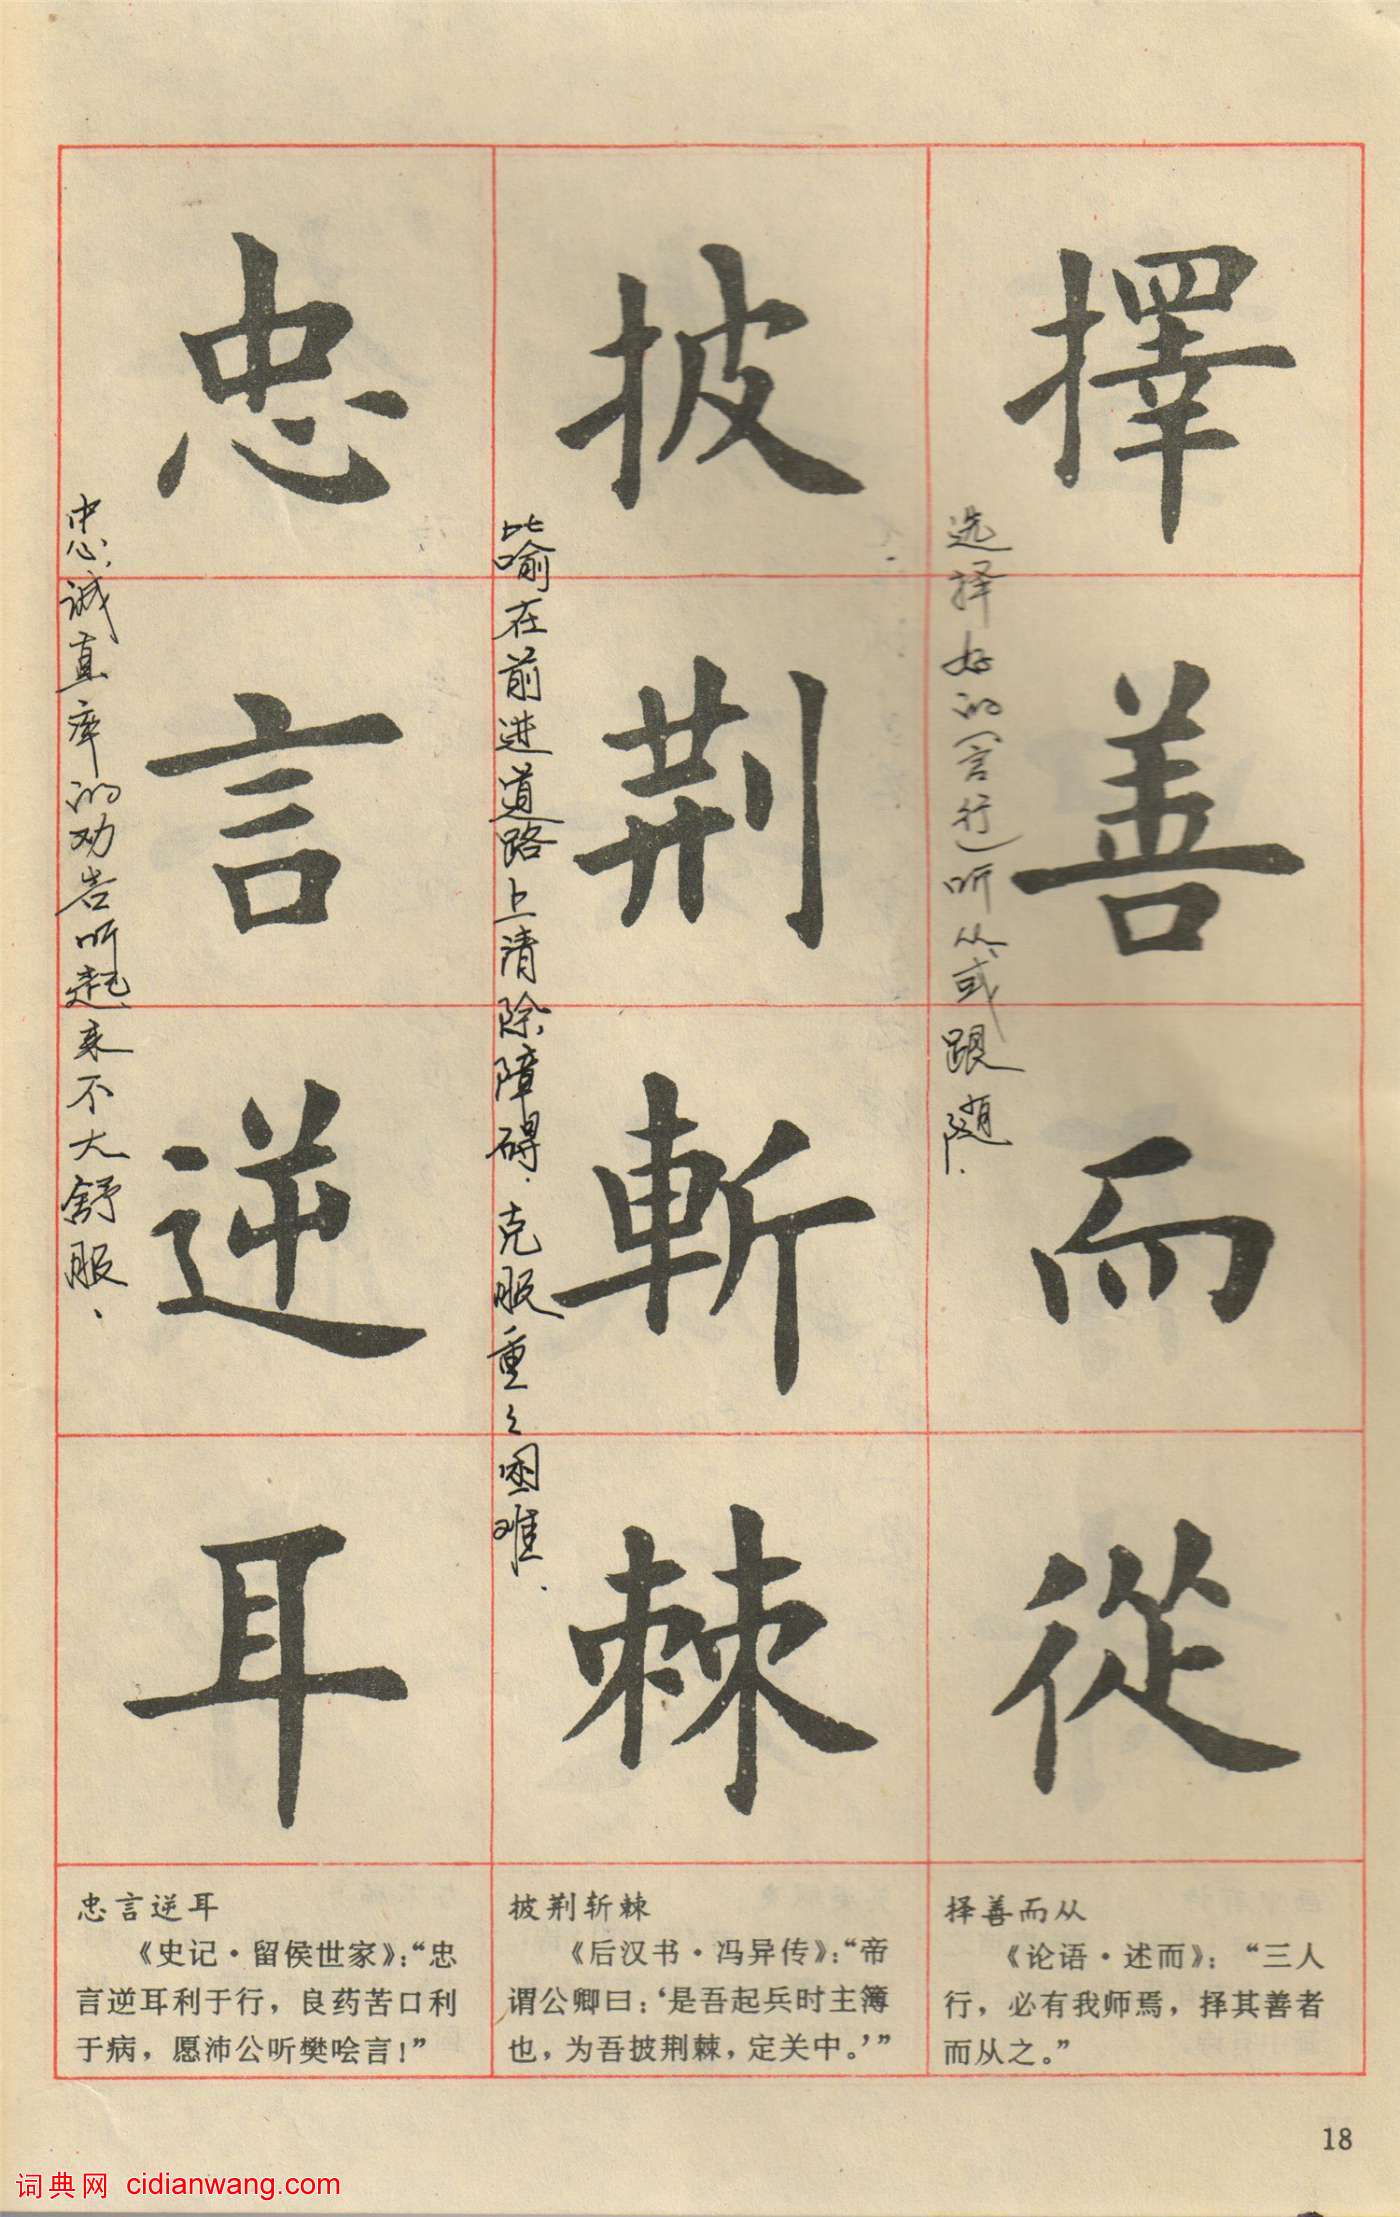 擇善而從
选择好的(言行)听从或跟随.
披荆斬棘
比喻在前进道路上清除障碍.克服重重困难.
忠言逆耳
忠诚直率的劝告听起来不大舒服.
择善而从
《论语·述而》:“三人
行，必有我师焉，择其善者
而从之。”
披荆斩棘
《后汉书·冯异传》:“帝
谓公卿曰:‘是吾起兵时主簿
也，为吾披荆棘，定关中。’”
忠言逆耳
《史记·留侯世家》:“忠
言逆耳利于行，良药苦口利
于病，愿沛公听樊哙言!”
18
词典网 cidianwang.com